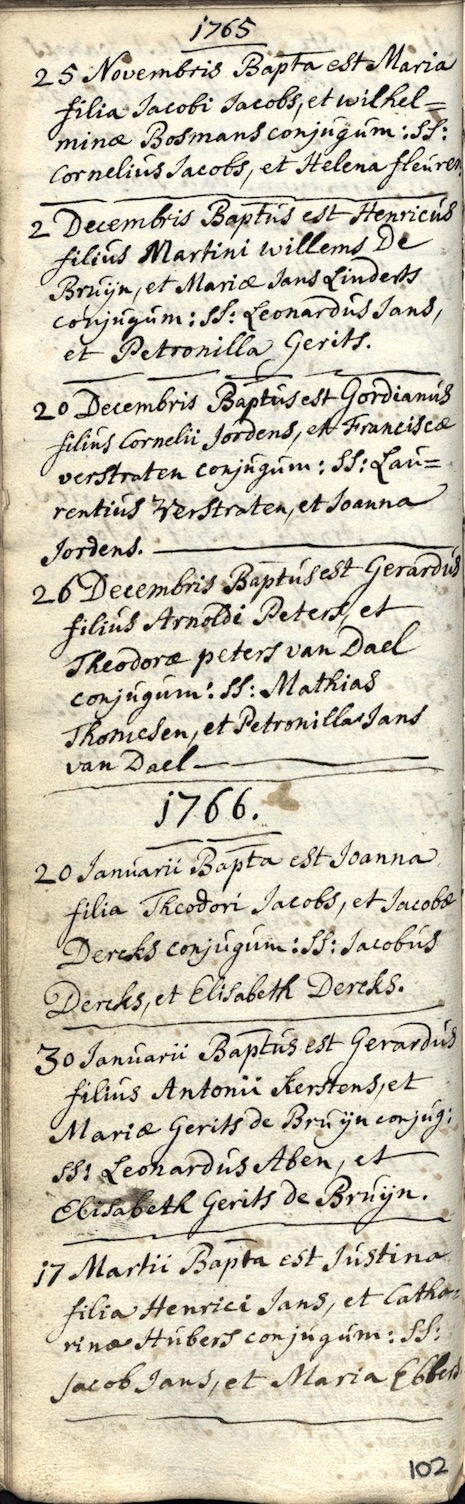 1765
25 Novembris Bapta est Maria
filia Jacobi Jacobs, et wilhel=
minæ Bosmans conjugum: SS:
Cornelius Jacobs, et Helena fleuren
2 Decembris Baptus est Henricus
filius Martini willems De
Bruijn, et Mariæ Jans Linders
conjugum: SS: Leonardus Jans,
et Petronilla Gerits.
20 Decembris Baptus est Gordianus
filius Cornelii Jordens, et Franciscæ
verstraten conjugum: SS: Lau=
rentius Verstraten, et Joanna
Jordens.
26 Decembris Baptus est Gerardus
filius Arnoldi Peters, et
Theodoræ peters van Dael
conjugum: SS: Mathias
Thomesen, et Petronilla Jans
van Dael
1766.
20 Januarii Bapta est Joanna
filia Theodori Jacobs, et Jacobæ
Dercks conjugum: SS: Jacobus
Dercks, et Elisabeth Dercks.
30 Januarii Baptus est Gerardus
filius Antonii Kerstens, et
Mariæ Gerits de Bruijn conjug:
SS: Leonardus Aben, et
Elisabeth Gerits de Bruijn.
17 Martii Bapta est Justina
filia Henrici Jans, et Catha=
rinæ Hubers conjugum: SS:
Jacob Jans, et Maria Ebbers
102